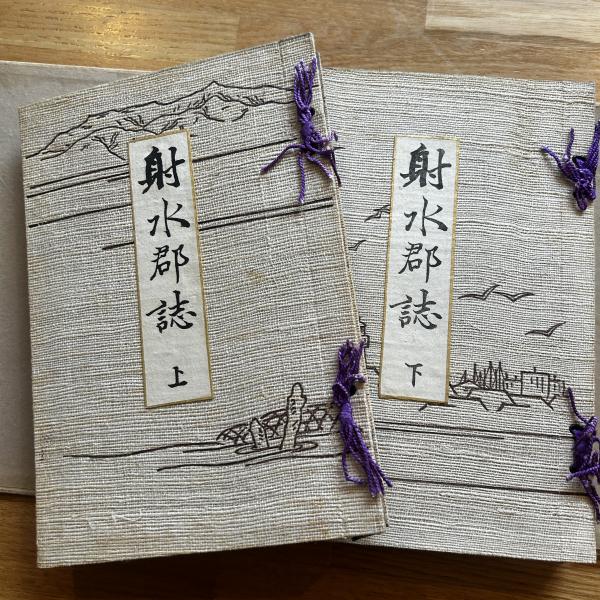 射水郡誌 上
射水郡誌 下